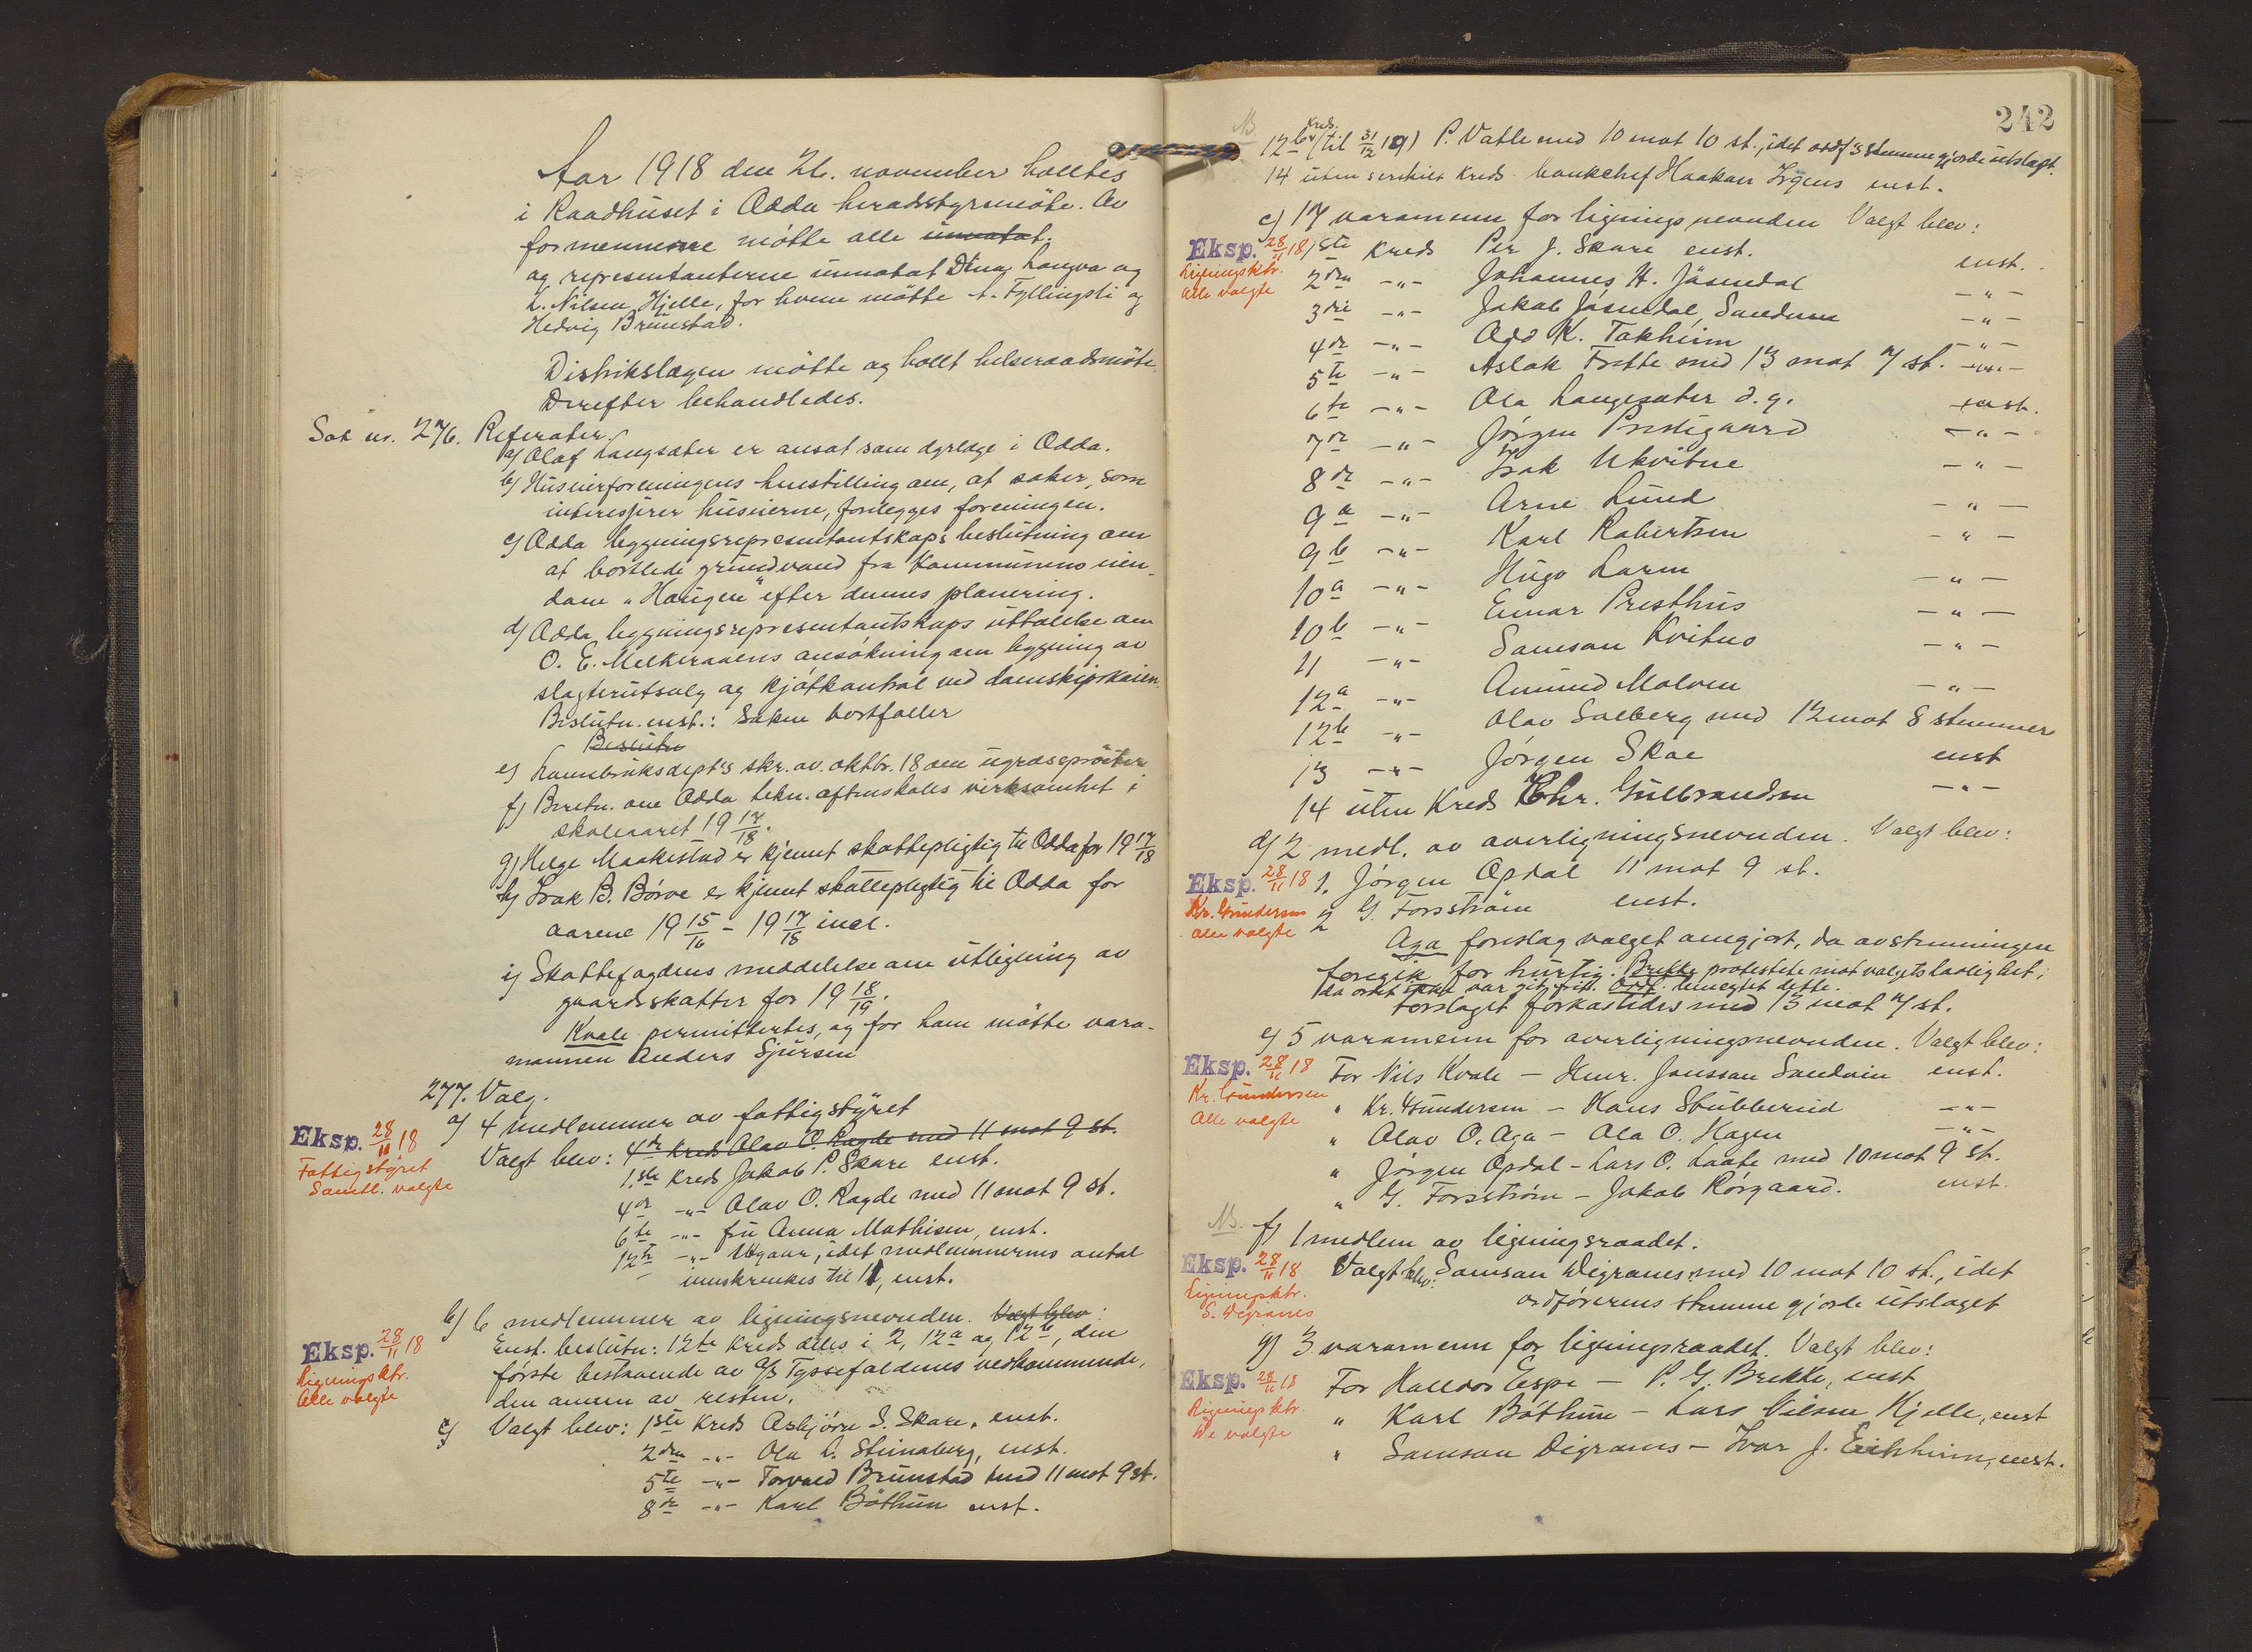 Aar 1918 den 26. november holltes
i Raadhuset i Odda heradsstyremöte. Av
formennerne mötte alle unnatat.
og representanterne unnatat Dina Langva og
L. Nilsen Hjelle, for hvem mötte A. Fyllingsli og
Hedvig Brunstad.
Distrikslægen mötte og hollt helseraadsmöte.
Derefter behandledes.
Sak nr. 276. Referater.
a) Olaf Langsater er ansat som dyrlæge i Odda.
b) Husmerforeningens henstilling om, at saker, som
interesserer husmerne, forelegges foreningen.
c) Odda bygningsrepresentantskaps beslutning om
at bortlede grundvand fra Kommunens eien-
dom "Haugen" efter dennes planering.
d) Odda bygningsrepresentantskaps uttalelse om
O. E. Melkeraaens ansökning om bygging av
slagterutsalg og kjötkontrol ved damskipskaien.
Beslutn. enst.: Saken bortfaller
Beslutn
e) Lannbruksdept's skr. av. oktbr. 18 om ugrassprøiter
f) Beretn. om Odda tekn. aftenskoles virksomhet i
skoleaaret 19 17/18.
g) Helge Maakestad er kjennt skattepligtig til Odda for 19 17/18
h) Isak B. Börve er kjennt skattepligtig til Odda for
aarene 19 15/16 - 19 17/18 incl.
i) Skattefogdens meddelelse om utligning av
gaardsskatter for 19 18/19.
Kvale permittertes, og for ham mötte vara-
mannen Anders Sjursen
277. Valg.
a) 4 medlemmer av fattigstyret
Eksp. 28/11 18
Fattigstyret
Samtl. valgte
Valgt blev: 4de kreds Olav O. Ragde med 11 mot 9 st.
1.ste Kreds Jakob P. Skare enst.
4de -"- Olav O. Ragde med 11 mot 9 st.
6te -"- fru Anna Mathisen, enst.
12te -"- Utgaar, idet medlemmernes antal
innskrenkes til 11, enst.
b) 6 medlemmer av ligningsnevnden. Valgt blev:
Eksp. 28/11 18
Ligningsktr.
Alle valgte
Enst. beslutn: 12te Kreds deles i 2, 12a og 12b, den
förste bestaaende av A/S Tyssefaldenes vedkommende,
den annen av resten.
c) Valgt blev: 1ste Kreds Asbjörn S. Skare, enst.
2den -"- Ola L. Steinaberg, enst.
5te -"- Torvald Brunstad med 11 mot 9 st.
8de -"- Karl Böthun enst.
242
NB
12b kreds. (til 31/12 19) P. Vatle med 10 mot 10 st., idet ordf's stemme gjorde utslaget.
14 uten serskilt Kreds bankchef Haakon Irgens enst.
c) 17 varamenn for ligningsnevnden Valgt blev:
Eksp. 28/11 18
Ligningsktr.
Alle valgte
1ste Kreds Per J. Skare enst.
2den -"- Johannes H. Jösendal enst.
3die -"- Jakob Jösendal, Sandum -"-
4de -"- Odd K. Tokheim -"-
5te -"- Aslak Frette med 13 mot 7 st. -"-
6te -"- Ola Langesater d.y. enst.
7de -"- Jörgen Prestegaard -"-
8de -"- Isak Ukvitne -"-
9a -"- Arne Lund -"-
9b -"- Karl Robertsen -"-
10a -"- Hugo Larm -"-
10b -"- Einar Presthus -"-
11 -"- Samson Kvitno -"-
12a -"- Amund Malven -"-
12b -"- Olav Solberg med 12 mot 8 stemmer
13 -"- Jörgen Skae enst
14 uten Kreds Chr. Gulbrandsen -"-
d) 2 medl. av overligningsnevnden. Valgt blev:
Eksp. 28/11 18
Kr. Gundersen
Alle valgte
1. Jörgen Opdal 11 mot 9 st.
2 G. Forsström enst.
Aga foreslog valget omgjort, da avstemningen
foregik for hurtig. Brekke protesterte mot valgets lovlighet,
da ordet ikke var git frit. Ordf. benegtet dette.
Forslaget forkastedes med 13 mot 7 st.
e) 5 varamenn for overligningsnevnden. Valgt blev:
Eksp. 28/11 18
Kr. Gundersen
Alle valgte
For Nils Kvale - Henr. Jonssøn Sandvin enst.
" Kr. Gundersen - Hans Stubberud -"-
" Olav O. Aga - Ola O. Hagen -"-
" Jörgen Opdal - Lars O. Laate med 10 mot 9 st.
" G. Forsström - Jakob Rörgaard. enst.
NB. f) 1 medlem av ligningsraadet.
Eksp. 28/11 18
Ligningsktr.
S. Digranes
Valgt blev: Samson Digranes med 10 mot 10 st., idet
ordförerens stemme gjorde utslaget
g) 3 varamenn for ligningsraadet. Valgt blev:
Eksp. 28/11 18
Ligningsktr.
De valgte
For Halldor Espe - P. G. Brekke, enst
" Karl Böthun - Lars Nilsen Hjelle, enst
" Samson Digranes - Ivar J. Eitrheim, enst.